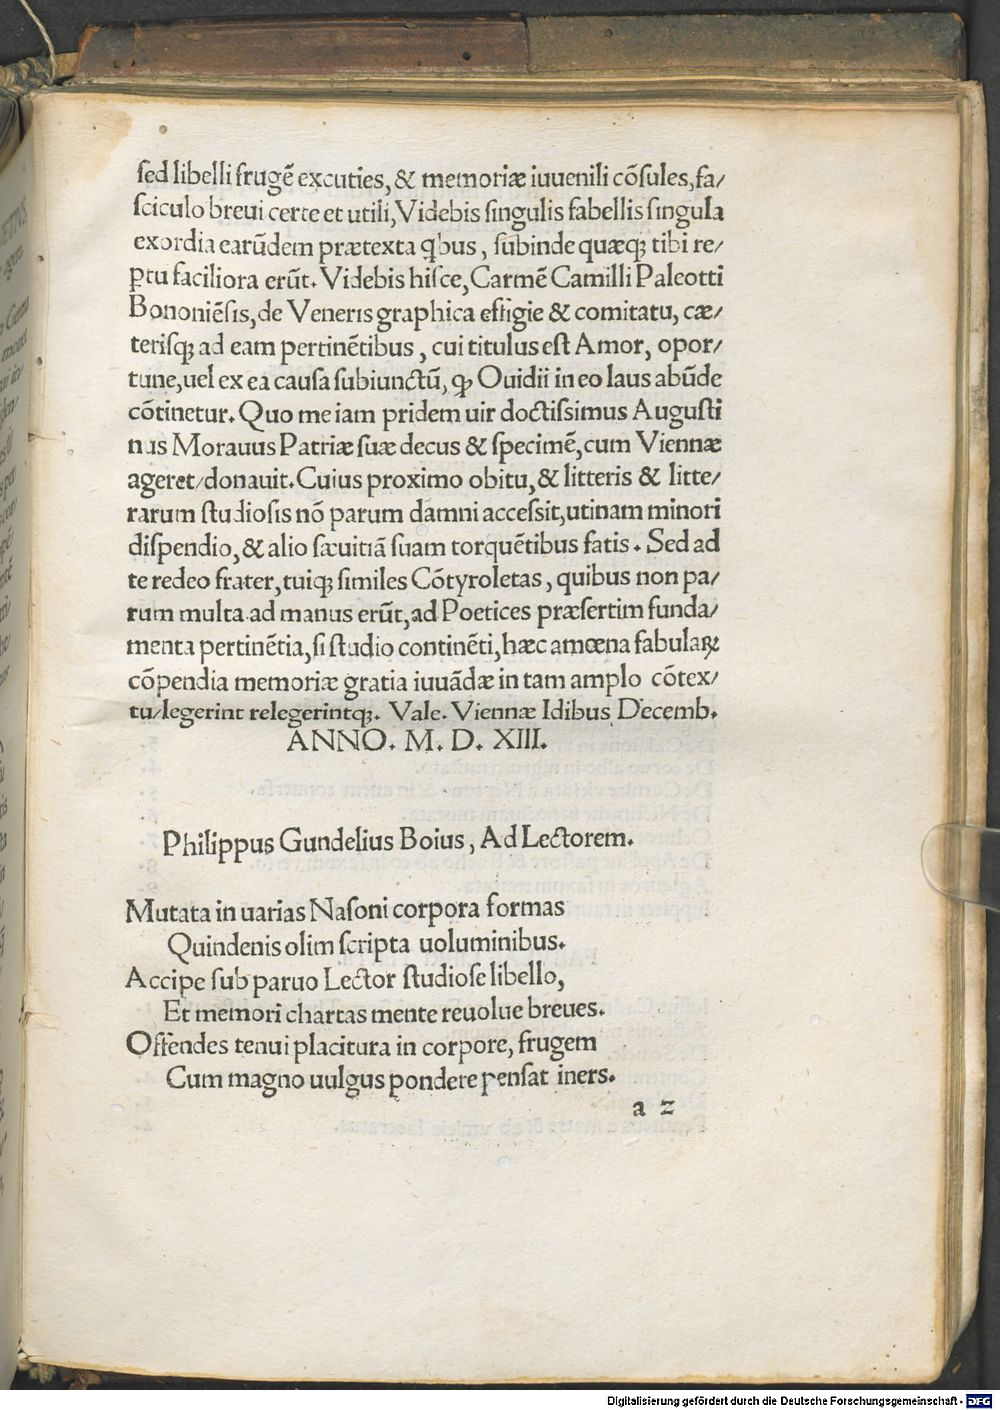 sed libelli frugē excuties, & memoriæ iuuenili cōsules, fa/
sciculo breui certe et utili, Videbis singulis fabellis singula
exordia earūdem prætexta qbus, subinde quæq; tibi re/
ptu faciliora erūt. Videbis hisce, Carmē Camilli Paleotti
Bononiēsis, de Veneris graphica effigie & comitatu, cæ/
terisq; ad eam pertinētibus, cui titulus est Amor, opor/
tune, uel ex ea causa subiunctū, ꝙ Ouidii in eo laus abūde
cōtinetur. Quo me iam pridem uir doctissimus Augusti
nus Morauus Patriæ suæ decus & specimē, cum Viennæ
ageret/donauit. Cuius proximo obitu, & litteris & litte/
rarum studiosis nō parum damni accessit, utinam minori
dispendio, & alio sæuitiā suam torquētibus fatis. Sed ad
te redeo frater, tuiq; similes Cōtyroletas, quibus non pa/
rum multa ad manus erūt, ad Poetices præsertim funda/
menta pertinētia, si studio continēti, hæc amœna fabulaꝝ
cōpendia memoriæ gratia iuuādæ in tam amplo cōtex/
tu/legerint relegerintq;. Vale. Viennæ Idibus Decemb.
ANNO. M. D. XIII.
Philippus Gundelius Boius, Ad Lectorem.
Mutata in uarias Nasoni corpora formas
Quindenis olim scripta uoluminibus.
Accipe sub paruo Lector studiose libello,
Et memori chartas mente reuolue breues.
Offendes tenui placitura in corpore, frugem
Cum magno uulgus pondere pensat iners.
a 2
Digitalisierung gefördert durch die Deutsche Forschungsgemeinschaft - DFG